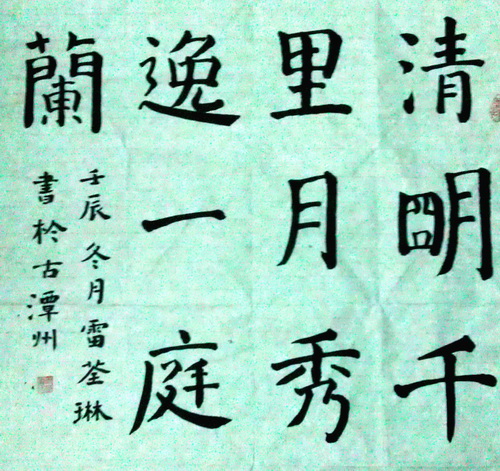 清朙千
里月秀
逸一庭
蘭
壬辰冬月雷荃琳
書於古潭州